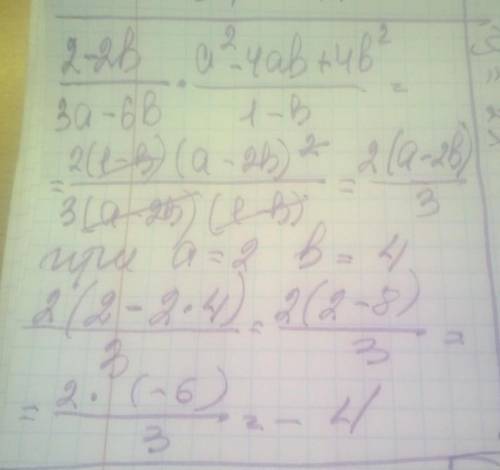 (2-2b)/(3a-6b) · (a²-4ab+4b²)/(1-b) =
= 2(1-b)(a-2b)²/3(a-2b)(1-b) = 2(a-2b)/3
при a=2 b=4
2(2-2·4)/3 = 2(2-8)/3 =
= 2·(-6)/3 = -4